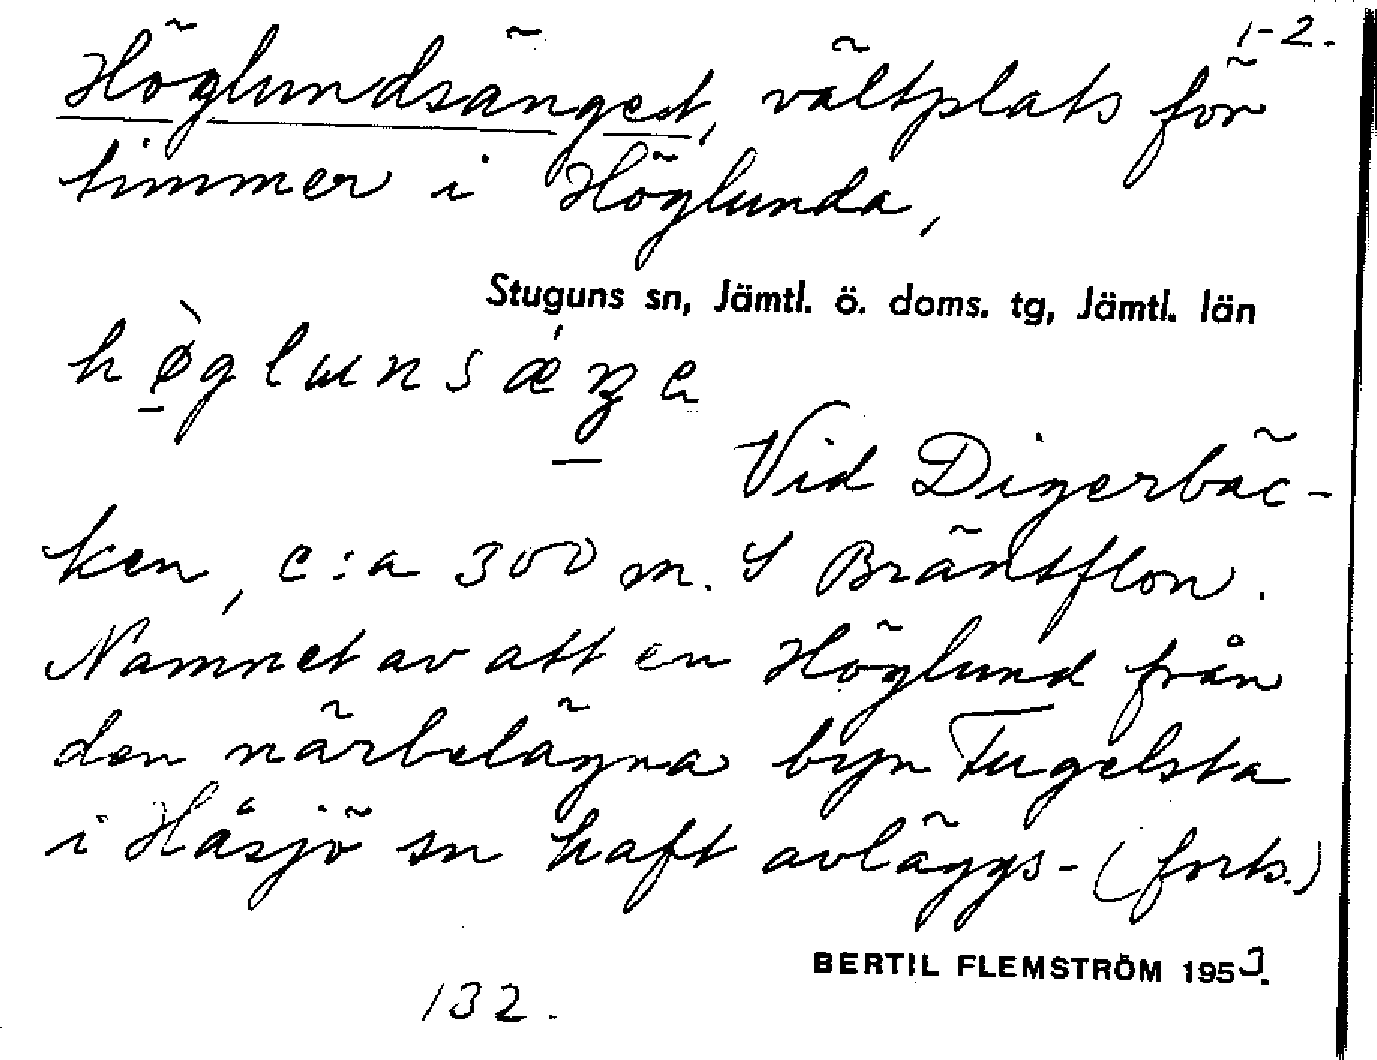 1-2.
Höglundsänget, vältplats för
timmer i Höglunda,
Stuguns sn, Jämtl. ö. doms. tg, Jämtl. län
hø̀glunsǽŋe
Vid Digerbäc-
ken, c:a 300 m. S Bräntflon.
Namnet av att en Höglund från
den närbelägna byn Fugelsta
i Håsjö sn haft avläggs- (forts.)
BERTIL FLEMSTRÖM 195
132.